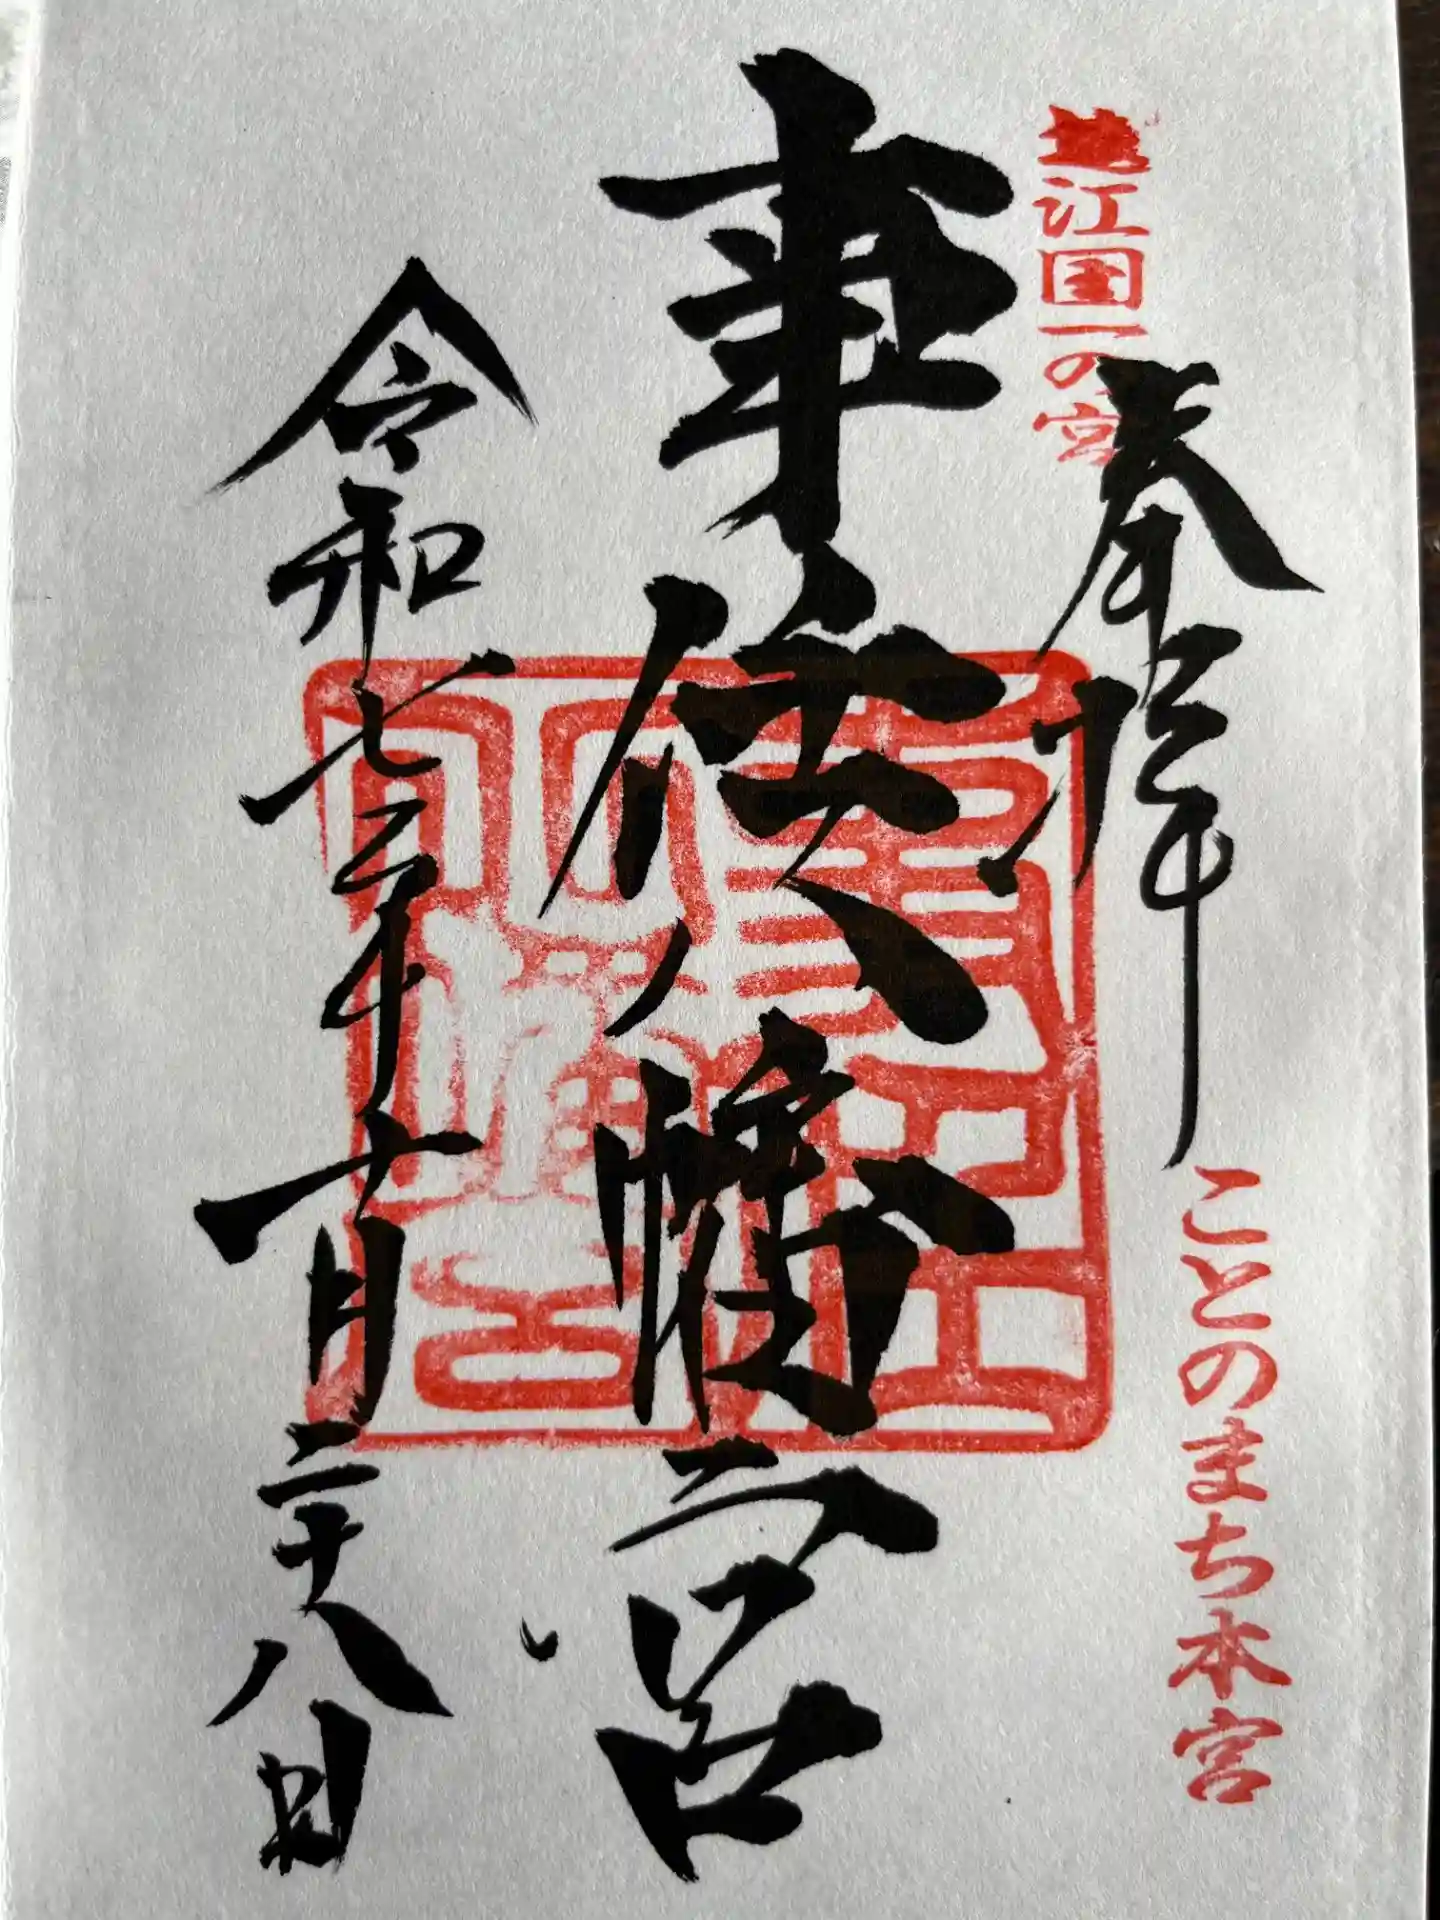 遠江国一の宮
奉拝
ことのまち本宮
事任八幡宮
令和七年十月二十八日